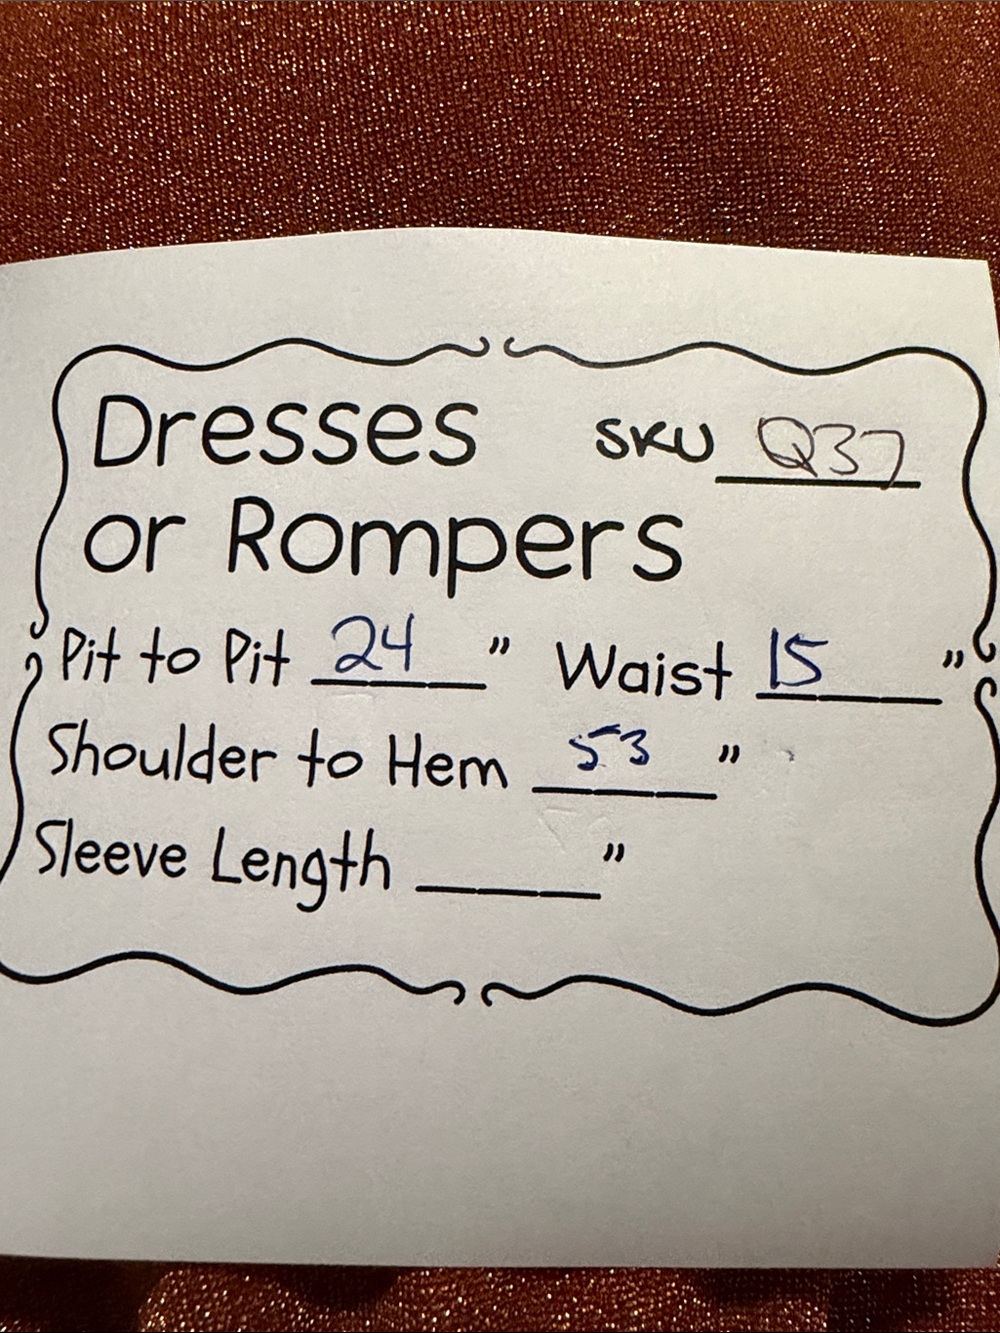 Dresses SKU Q37
or Rompers
Pit to Pit 24 " Waist 15 "
Shoulder to Hem 53 "
Sleeve Length ____"